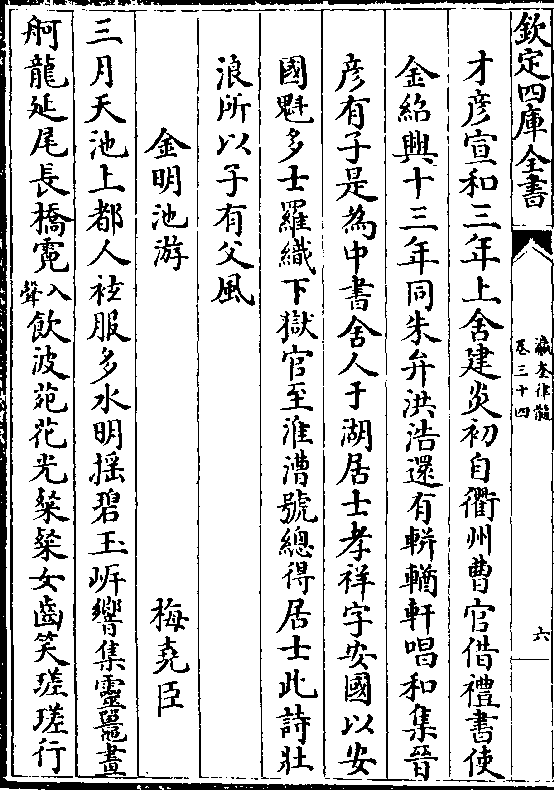 欽定四庫全書
瀛奎律髓
卷三十四
六
才彦宣和三年上舍建炎初自衢州曹官借禮書使
金紹興十三年同朱弁洪浩還有輧輶軒唱和集晉
彦有子是為中書舍人于湖居士孝祥字安國以安
國魁多士羅織下獄官至淮漕號總得居士此詩壯
浪所以子有父風
金明池游
梅堯臣
三月天池上都人袨服多水明揺碧玉㟁響集靈鼉畫
舸龍延尾長橋霓入聲飲波苑花光粲粲女齒笑瑳瑳行